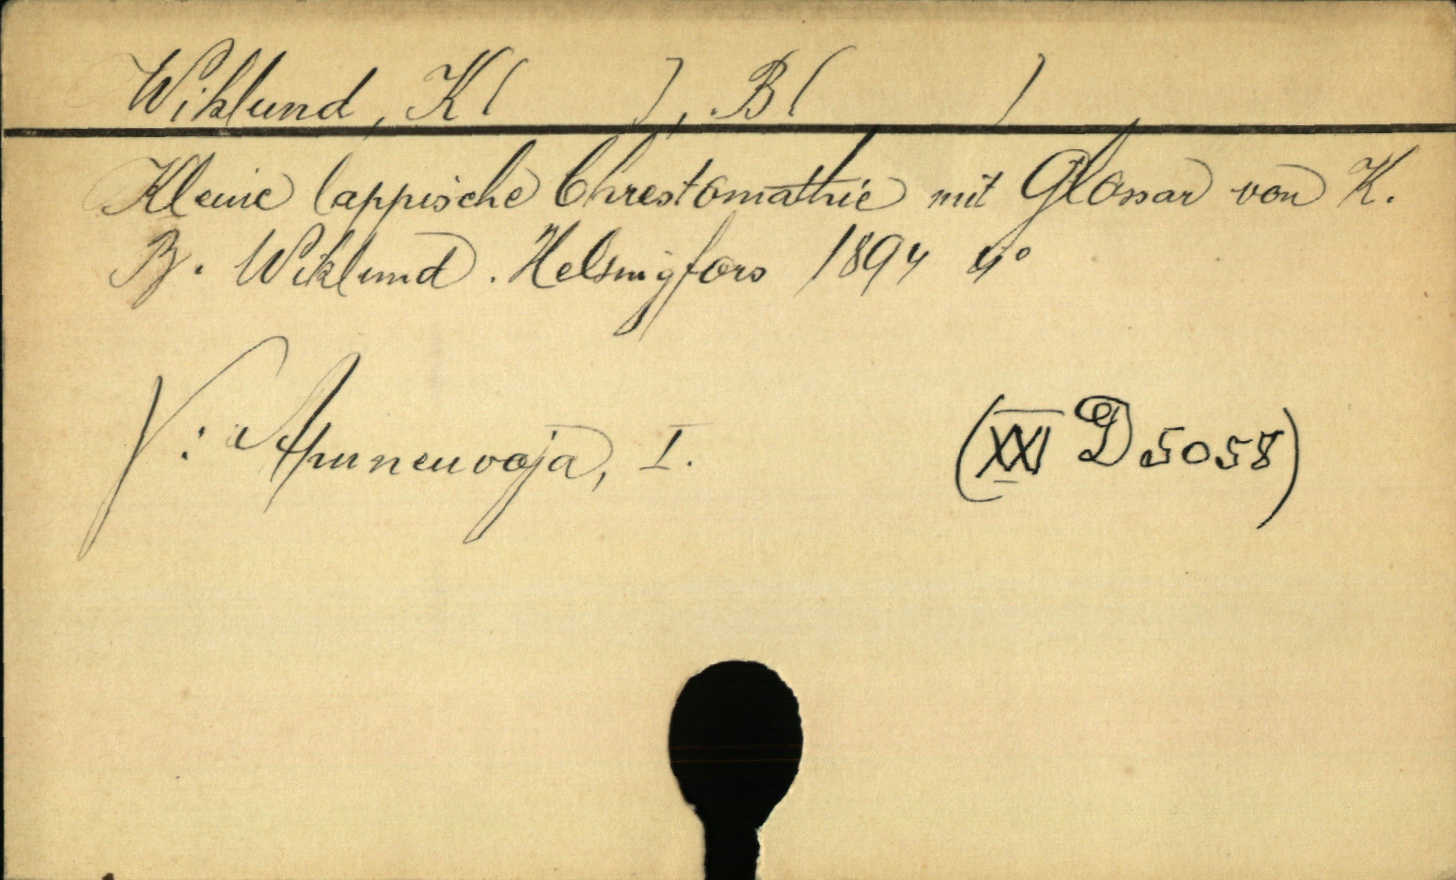 Wiklund, K( ), B( )
Kleine lappische Chrestomathie mit Glossar von K.
B. Wiklund. Helsingfors 1894 4°
V: Apuneuvoja, I. (XXI D 5058)